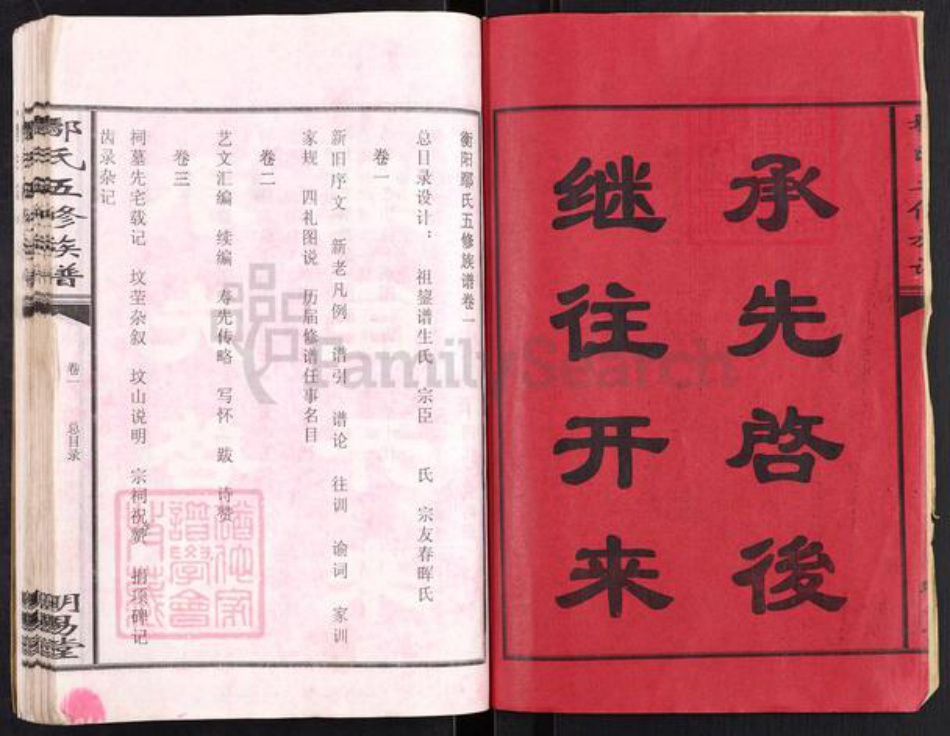 承先啓後
继往开来
衡阳鄢氏五修族谱卷一
总目录设计： 祖鋆谱生氏 宗臣 氏 宗友春晖氏
卷一
新旧序文 新老凡例 谱引 谱论 往训 谕词 家训
家规 四礼图说 历届修谱任事名目
卷二
艺文汇编 续编 寿先传略 写怀 跋 诗赞
卷三
祠墓先宅载记 坟茔杂叙 坟山说明 宗祠祝赞 捐项碑记
齿录杂记
氏五修族谱
卷一 总目录
明易堂
FamilySearch